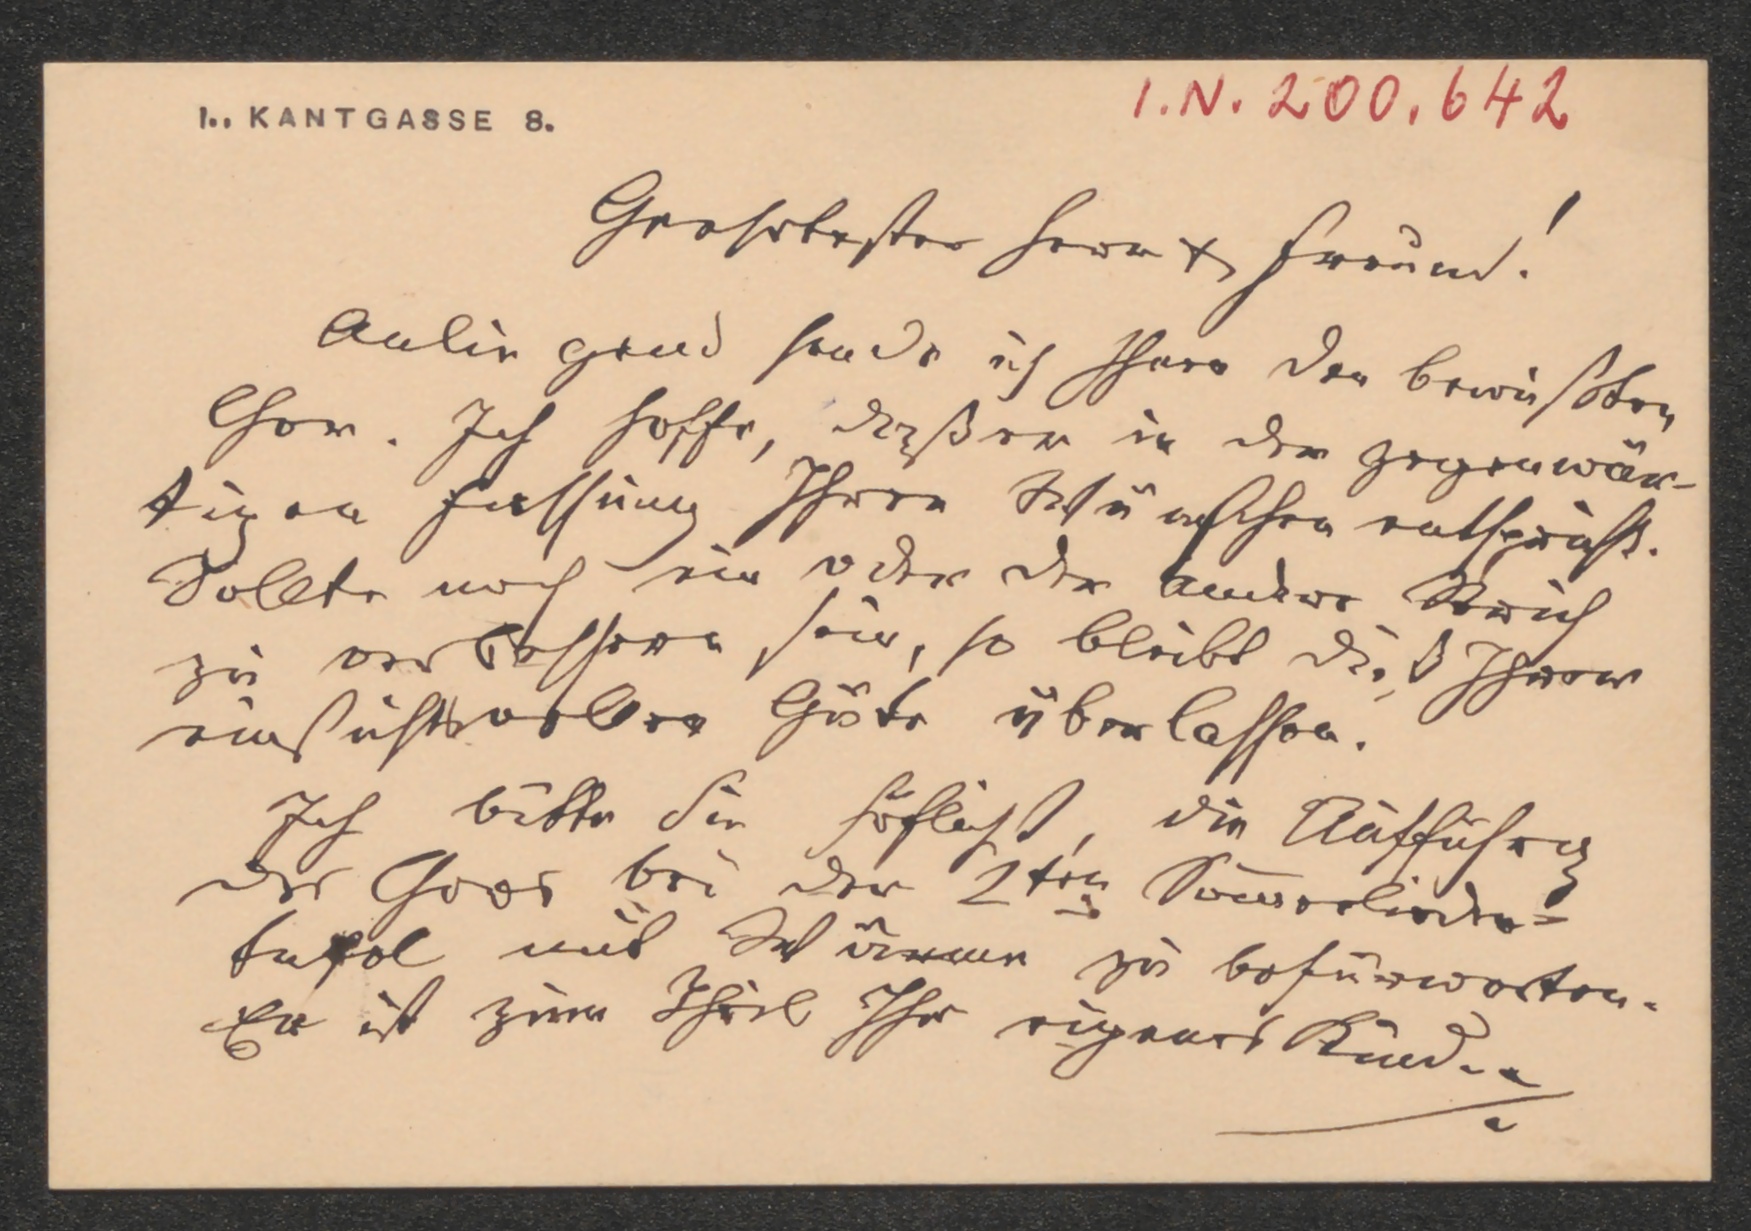 I., KANTGASSE 8.
I.N. 200.642
Geehrtester Herr & Freund!
Anliegend sende ich Ihnen den bewußten
Chor. Ich hoffe, daß er in der gegenwär-
tigen Fassung Ihren Wünschen entspricht.
Sollte noch ein oder der andere Strich
zu verbessern sein, so bleibt dieß Ihrer
einsichtsvollen Güte überlassen.
Ich bitte Sie höflichst, die Aufführg
des Chors bei der 2ten Sommerlieder=
tafel mit Wärme zu befürworten.
Er ist zum Theil Ihr eigenes Kind..